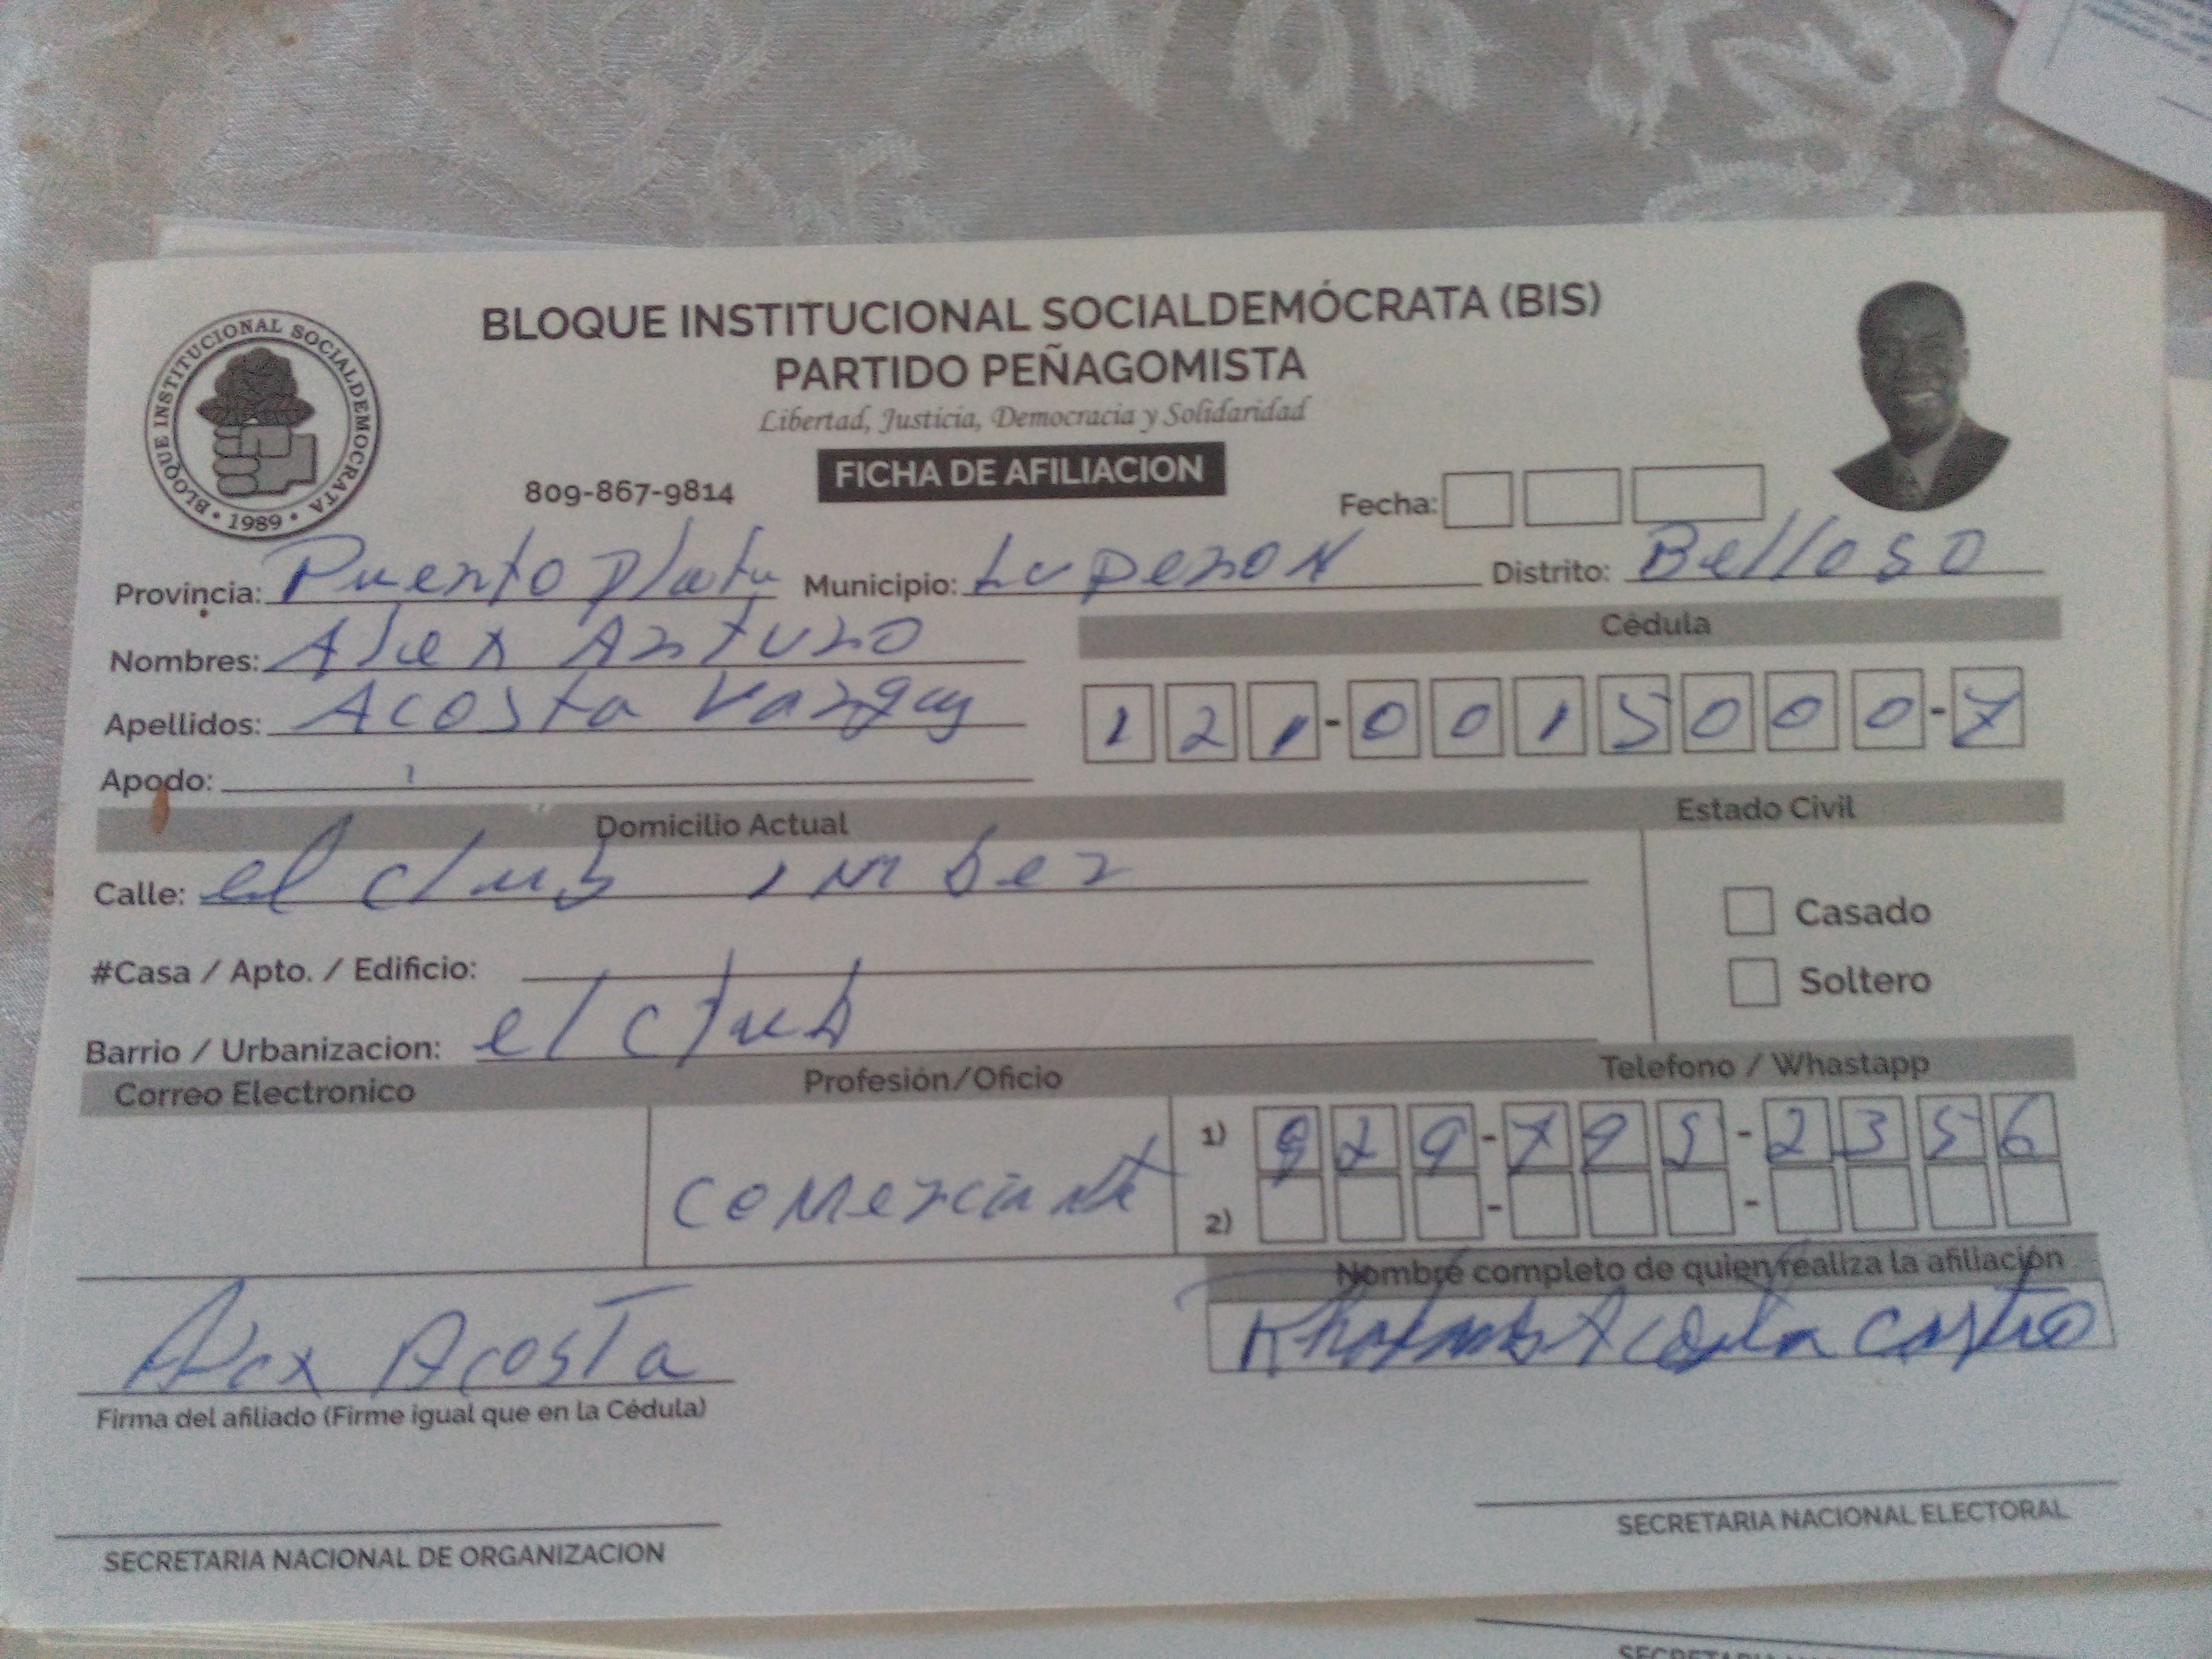 BLOQUE INSTITUCIONAL SOCIALDEMÓCRATA (BIS)
PARTIDO PEÑAGOMISTA
Libertad, Justicia, Democracia y Solidaridad
BLOQUE INSTITUCIONAL SOCIALDEMOCRATA • 1989 •
809-867-9814
FICHA DE AFILIACION
Fecha:
Provincia: Puerto Plata Municipio: Luperon Distrito: Belloso
Nombres: Alex Arturo
Cédula
Apellidos: Acosta
121-0015000-7
Apodo:
Domicilio Actual
Estado Civil
Calle: el club imber
Casado
#Casa / Apto. / Edificio:
Soltero
Barrio / Urbanizacion: el club
Correo Electronico
Profesión/Oficio
Telefono / Whastapp
Comerciante
1) 829-795-2356
2)
Nombre completo de quien realiza la afiliación
Acosta Castro
Alex Acosta
Firma del afiliado (Firme igual que en la Cédula)
SECRETARIA NACIONAL DE ORGANIZACION
SECRETARIA NACIONAL ELECTORAL